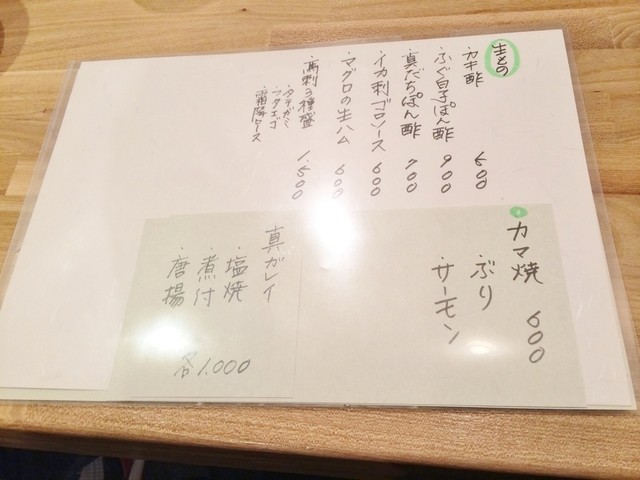 生もの
・カキ酢 600
・ふぐ白子ぽん酢 900
・真だちぽん酢 700
・イカ刺ゴロソース 600
・マグロの生ハム 600
・馬刺3種盛 1,500
・タテガミ
・フタエゴ
・霜降ロース
カマ焼 600
・ぶり
・サーモン
真ガレイ
・塩焼
・煮付
・唐揚
各1.000